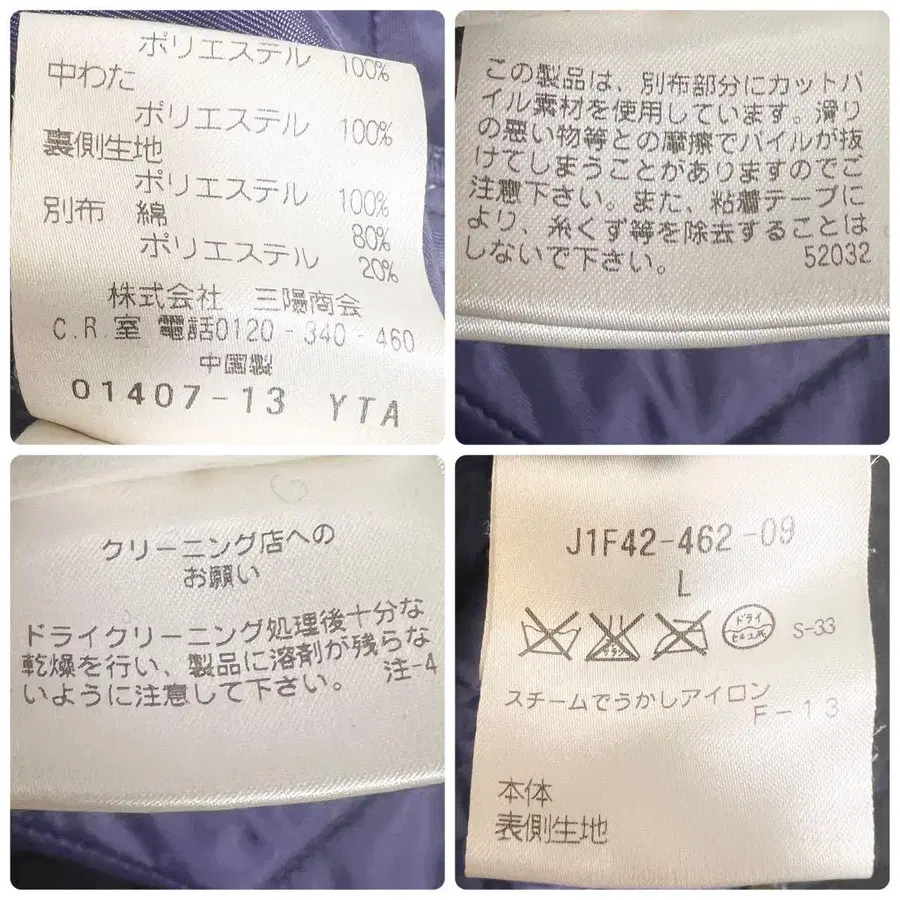 ポリエステル 100%
中わた
ポリエステル 100%
裏側生地
ポリエステル 100%
別布 綿 80%
ポリエステル 20%
株式会社 三陽商会
C.R.室 電話0120-340-460
中国製
01407-13 YTA
この製品は、別布部分にカットパ
イル素材を使用しています。滑り
の悪い物等との摩擦でパイルが抜
けてしまうことがありますのでご
注意下さい。また、粘着テープに
より、糸くず等を除去することは
しないで下さい。 52032
クリーニング店への
お願い
ドライクリーニング処理後十分な
乾燥を行い、製品に溶剤が残らな
いように注意して下さい。 注-4
J1F42-462-09
L
ドライ
セキユ系
S-33
スチームでうかしアイロン
F-13
本体
表側生地